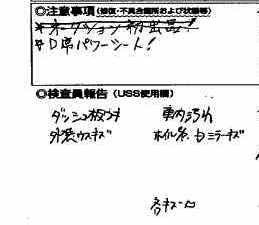 ◎注意事項（修復・不具合箇所および状態等）
＊オークション初出品！
＊D席パワーシート！
◎検査員報告（USS使用欄）
ダッシュ板つキ 車内汚れ
外装ウスキズ ホイル傷、セミラーキズ